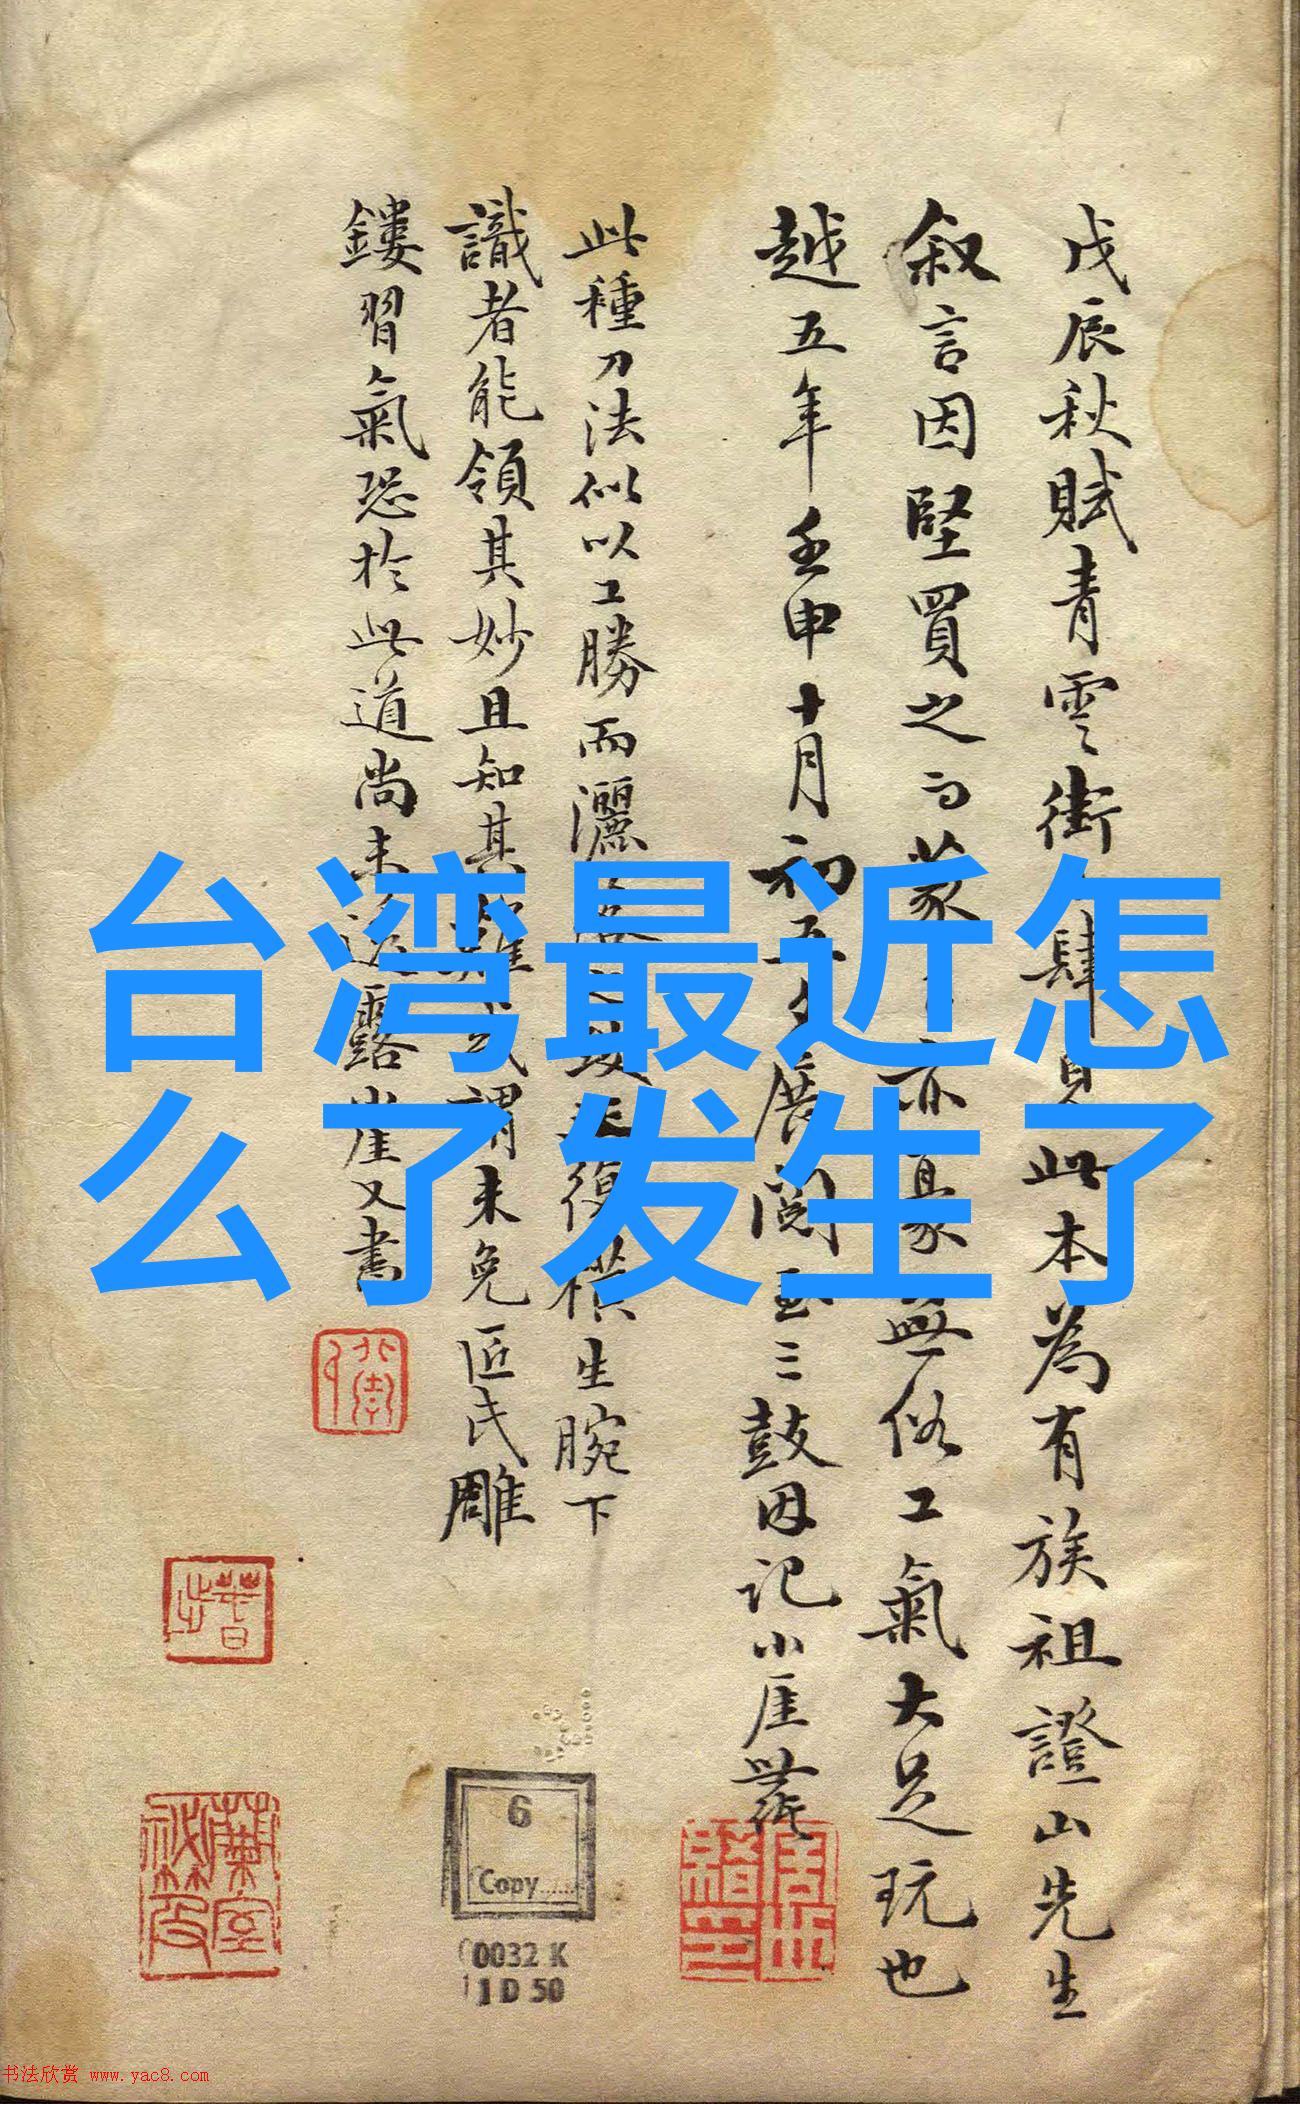 戊辰秋賦青雲街肆見此本為有族祖證山先生
叙言因堅買之而蒙亦豪無俗工氣大足玩也
越五年壬申十月初五夕展閱至三鼓因記小厓
此種刀法似以工勝而灑復橫生腕下
識者能領其妙且知其難或謂未免匠氏雕
鏤習氣恐於此道尚未透露小厓又書
台湾最近怎
么了发生了
6
Copy
0032 K
1 D 50
书法欣赏 www.yac8.com